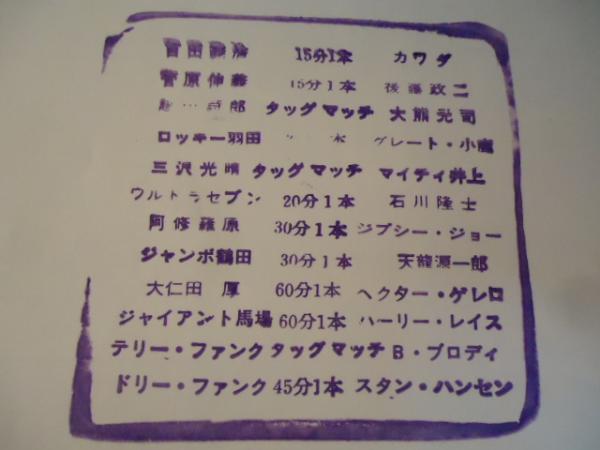 冨田勝治 15分1本 カワダ
菅原伸義 15分1本 後藤政二
タッグマッチ 大熊元司
ロッキー羽田 本 グレート・小鹿
三沢光晴 タッグマッチ マイティ井上
ウルトラセブン 20分1本 石川隆士
阿修羅原 30分1本 ジプシー・ジョー
ジャンボ鶴田 30分1本 天龍源一郎
大仁田 厚 60分1本 ヘクター・ゲレロ
ジャイアント馬場 60分1本 ハーリー・レイス
テリー・ファンク タッグマッチ B・ブロディ
ドリー・ファンク 45分1本 スタン・ハンセン